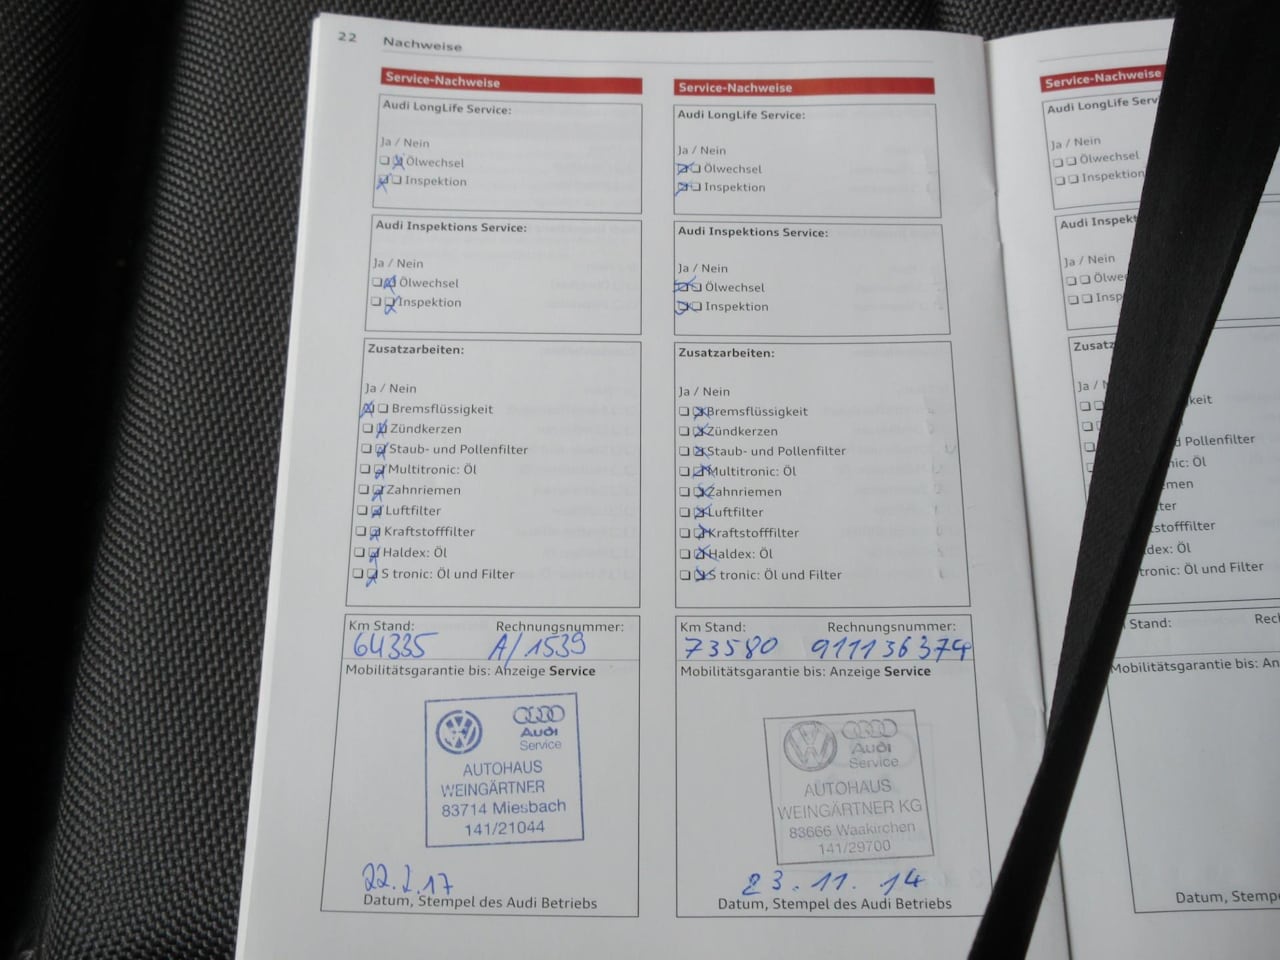 22 Nachweise
Service-Nachweise
Audi LongLife Service:
Ja / Nein
Ölwechsel
Inspektion
Audi Inspektions Service:
Ja / Nein
Ölwechsel
Inspektion
Zusatzarbeiten:
Ja / Nein
Bremsflüssigkeit
Zündkerzen
Staub- und Pollenfilter
Multitronic: Öl
Zahnriemen
Luftfilter
Kraftstofffilter
Haldex: Öl
S tronic: Öl und Filter
Km Stand: Rechnungsnummer:
64335 A/1539
Mobilitätsgarantie bis: Anzeige Service
Audi
Service
AUTOHAUS
WEINGÄRTNER
83714 Miesbach
141/21044
22.2.17
Datum, Stempel des Audi Betriebs
Service-Nachweise
Audi LongLife Service:
Ja / Nein
Ölwechsel
Inspektion
Audi Inspektions Service:
Ja / Nein
Ölwechsel
Inspektion
Zusatzarbeiten:
Ja / Nein
Bremsflüssigkeit
Zündkerzen
Staub- und Pollenfilter
Multitronic: Öl
Zahnriemen
Luftfilter
Kraftstofffilter
Haldex: Öl
S tronic: Öl und Filter
Km Stand: Rechnungsnummer:
73580 911136374
Mobilitätsgarantie bis: Anzeige Service
Audi
Service
AUTOHAUS
WEINGÄRTNER KG
83666 Waakirchen
141/29700
23.11.14
Datum, Stempel des Audi Betriebs
Service-Nachweise
Audi LongLife
Ja / Nein
Ölwechsel
Inspektion
Audi
Ja / Nein
Ja /
Pollenfilter
Öl
Öl
Öl und Filter
Stand:
Mobilitätsgarantie bis:
Datum,